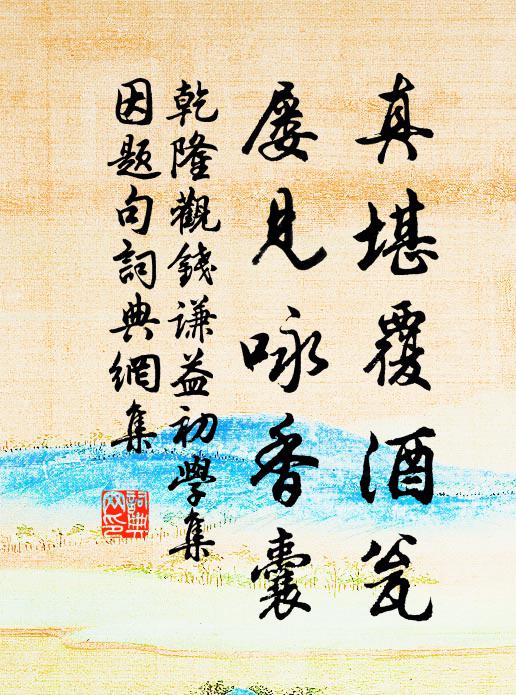 真堪覆酒瓮
屡見咏香囊
乾隆觀錢謙益初學集
因題句詞典網集
詞典
网印